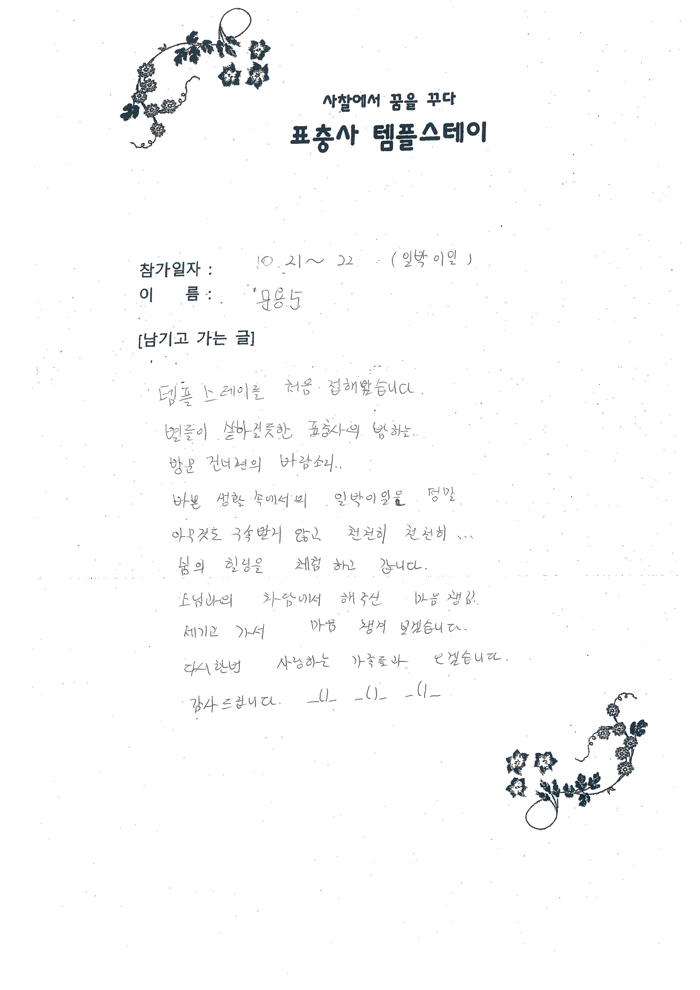 사찰에서 꿈을 꾸다
표충사 템플스테이
참가일자 : 10. 21 ~ 22 . (일박이일)
이 름 : 문용도
[남기고 가는 글]
템플스테이를 처음 접해봤습니다.
별들이 쏟아질듯한 표충사의 밤하늘..
방문 건너편의 바람소리..
바쁜 생활 속에서의 일박이일은 정말
아무것도 구속받지 않고 천천히 천천히 ...
쉼의 힐링을 체험하고 갑니다.
스님과의 차담에서 해주신 마음챙김.
새기고 가서 마음 챙겨 보겠습니다.
다시한번 사랑하는 가족들과 오겠습니다.
감사드립니다. _()_ _()_ _()_